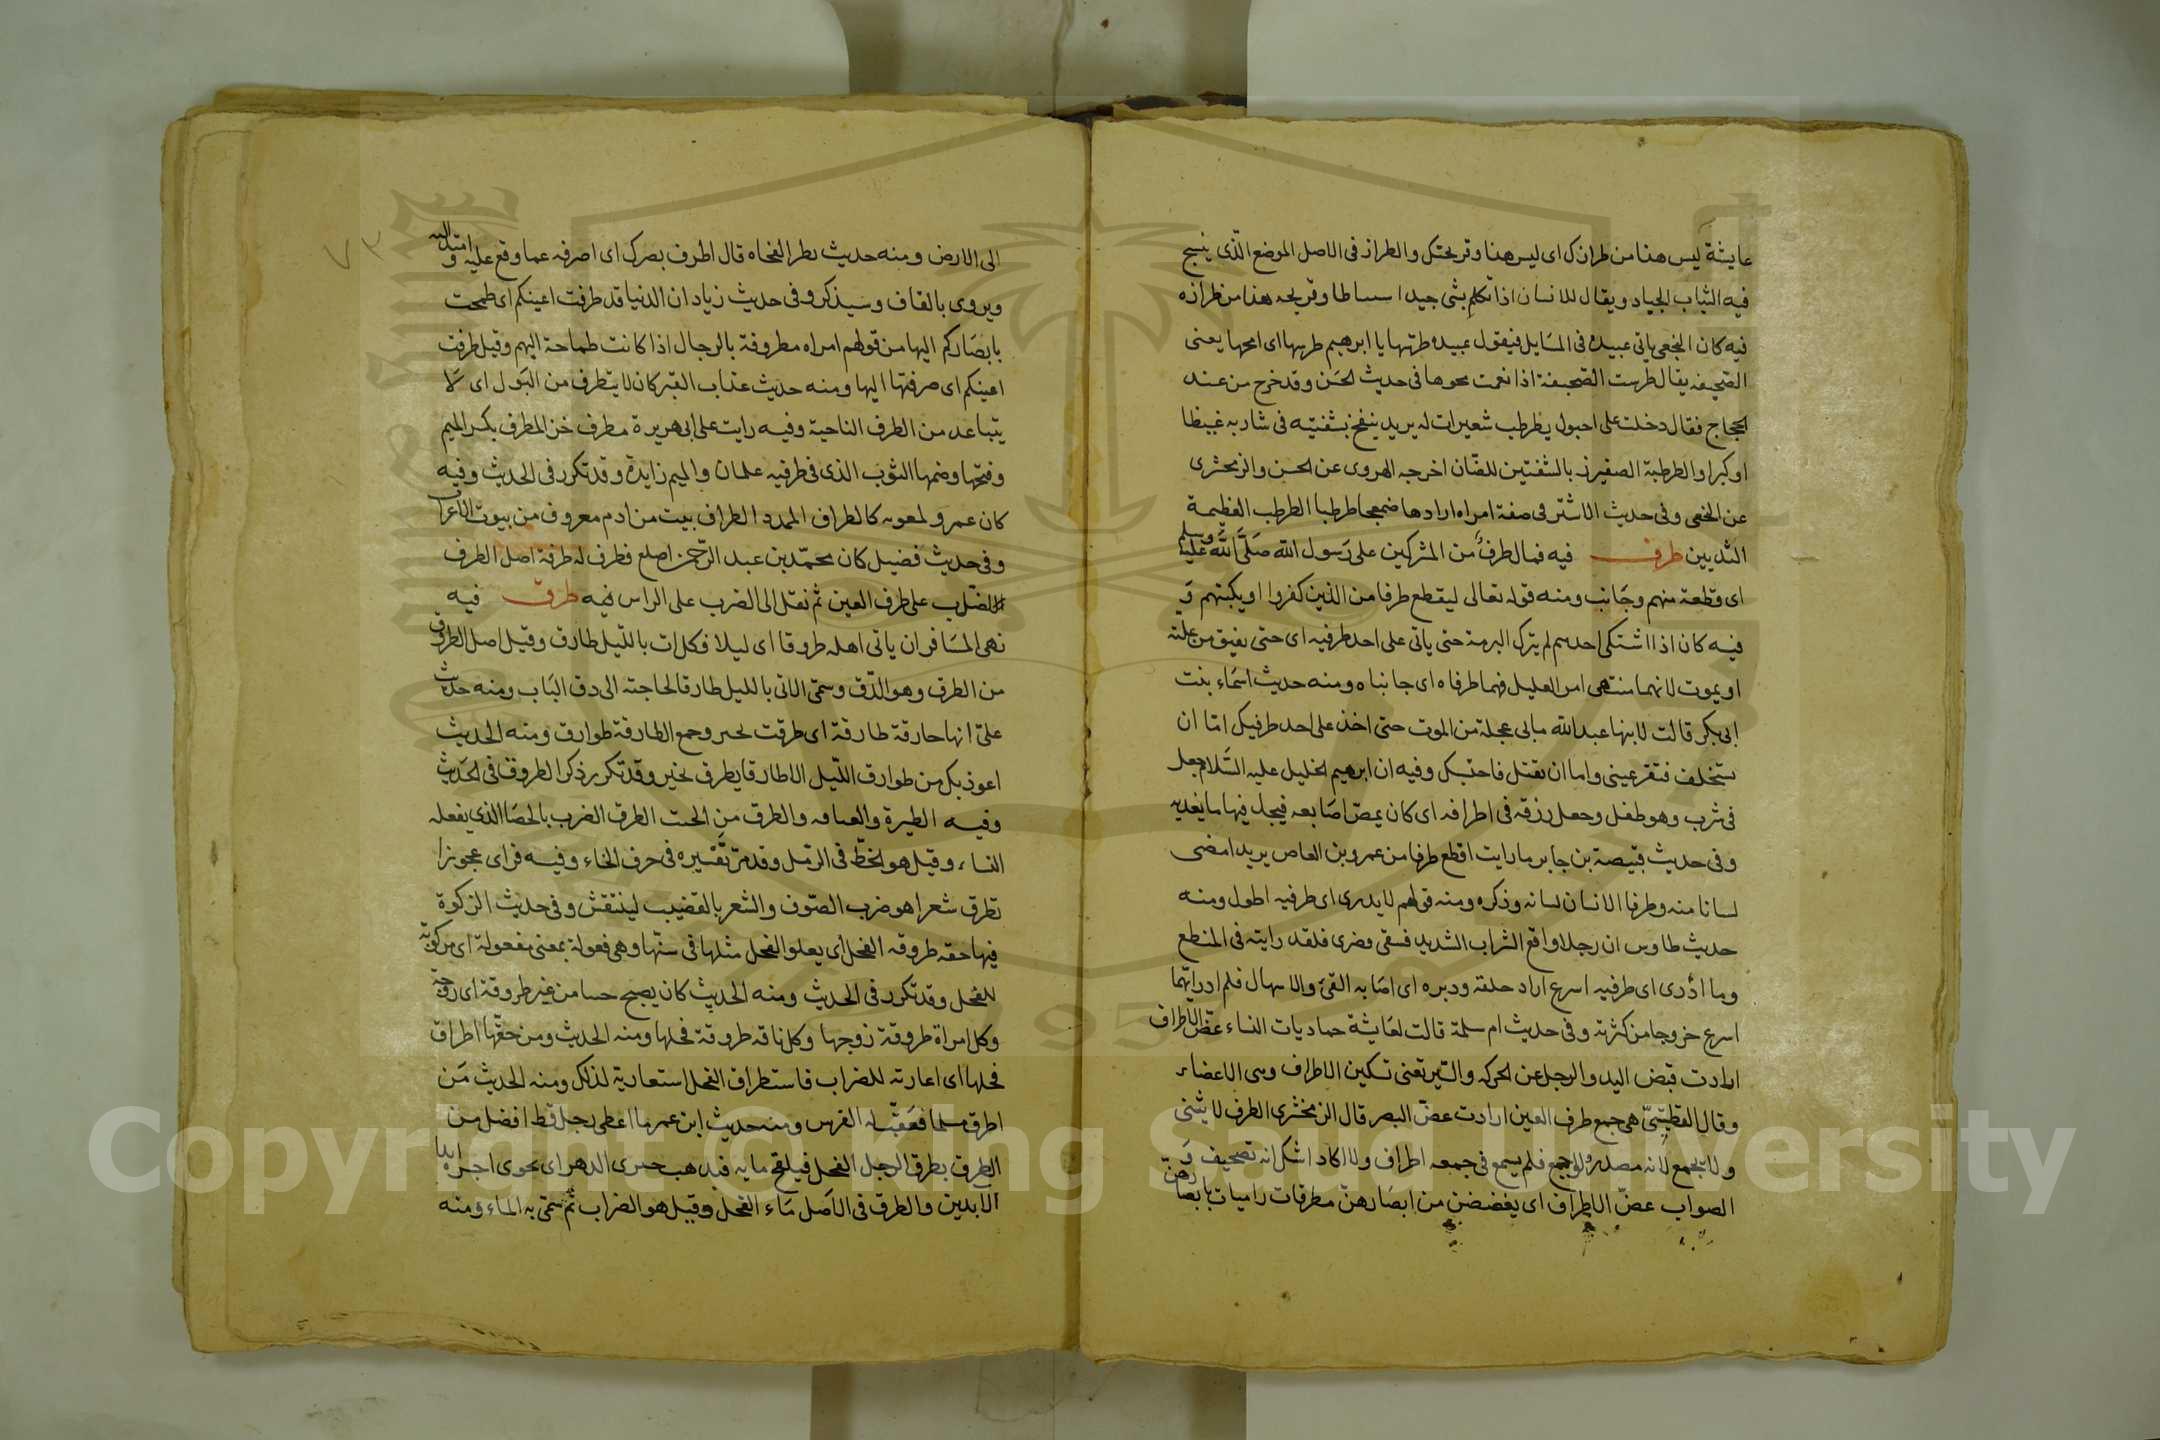 عايشة ليس هذا من طرازك اى ليس هذا وقريحتك والطراز فى الاصل الموضع الذى ينسج
فيه الثياب الجياد ويقال للانسان اذا تكلم بشى جيد استنباطا وقريحه هذا من طرازه
فيه كان النخعى ياتى عبيده فى المسايل فيقول عبيده طرسها يا ابرهيم طرسها اى امحها يعنى
الصحيفه يقال طرست الصحيفة اذا نعمت محوها فى حديث الحسن وقد خرج من عند
الحجاج فقال دخلت على احيول يطرطب شعيرات له يريد ينفخ بشفتيه فى شاربه غيظا
او كبرا والطرطبة الصفير بالشفتين للضان اخرجه الهروى عن الحسن والزمخشرى
عن النخعى وفى حديث الاشتر فى صفة امراه ارادها ضمعجا طرطبا الطرطب العظيمة
الثديين طرف فيه فمال طرف من المشركين على رسول الله صلى الله عليه وسلم
اى قطعة منهم وجانب ومنه قوله تعالى ليقطع طرفا من الذين كفروا او يكبتهم و
فيه كان اذا اشتكى احدهم لم يترك البرمة حتى ياتى على احد طرفيه اى حتى يفيق من علته
او يموت لانهما منتهى امر العليل فهما طرفاه اى جانباه ومنه حديث اسماء بنت
ابى بكر قالت لابنها عبد الله مابى عجلة من الموت حتى اخذ على احد طرفيك اما ان
تستخلف فتقر عينى واما ان تقتل فاحتسبك وفيه ان ابرهيم الخليل عليه السلام جعل
فى سرب وهو طفل وجعل رزقه فى اطرافه اى كان يمص اصابعه فيجد فيها ما يغذيه
وفى حديث قبيصة بن جابر ما رايت اقطع طرفا من عمرو بن العاص يريد امضى
لسانا منه وطرفا الانسان لسانه وذكره ومنه قولهم لا يدرى اى طرفيه اطول ومنه
حديث طاوس ان رجلا واقع الشراب الشديد فسقى فضرى فلقد رايته فى النطع
وما ادرى اى طرفيه اسرع اراد حلقه ودبره اى اصابه القئ والاسهال فلم ادر ايهما
اسرع خروجا من كثرته وفى حديث ام سلمة قالت لعايشة حماديات النساء غض الاطراف
ارادت قبض اليد والرجل عن الحركه والسير تعنى تسكين الاطراف وهى الاعضاء
وقال القتيبى هى جمع طرف العين ارادت غض البصر قال الزمخشرى الطرف لا يثنى
ولا يجمع لانه مصدر ولو جمع فلم يسمع فى جمعه اطراف ولا اكاد اشك انه تصحيف و
الصواب غض الاطراق اى يغضضن من ابصارهن مطرقات راميات بابصارهن
الى الارض ومنه حديث نظر الفجاه قال اطرف بصرك اى اصرفه عما وقع عليه وامتد اليه
ويروى بالقاف وسيذكر وفى حديث زياد ان الدنيا قد طرفت اعينكم اى طمحت
بابصاركم اليها من قولهم امراه مطروفة بالرجال اذا كانت طماحة اليهم وقيل طرفت
اعينكم اى صرفتها اليها ومنه حديث عذاب القبر كان لا يتطرف من البول اى لا
يتباعد من الطرف الناحية وفيه رايت على ابى هريرة مطرف خز المطرف بكسر الميم
وفتحها وضمها الثوب الذى فى طرفيه علمان والميم زايدة وقد تكرر فى الحديث وفيه
كان عمرو لمعويه كالطراف الممدد الطراف بيت من ادم معروف من بيوت الاعراب
وفى حديث فضيل كان محمد بن عبد الرحمن اصلع فطرف له طرفة اصل الطرف
الضرب على طرف العين ثم نقل الى الضرب على الراس طرق فيه
نهى المسافر ان ياتى اهله طروقا اى ليلا وكل ات بالليل طارق وقيل اصل الطروق
من الطرق وهو الدق وسمى الاتى بالليل طارقا لحاجته الى دق الباب ومنه حديث
على انها حارقة طارقة اى طرقت بخير وجمع الطارقة طوارق ومنه الحديث
اعوذ بك من طوارق الليل الا طارقا يطرق بخير وقد تكرر ذكر الطروق فى الحديث
وفيه الطيرة والعيافه والطرق من الجبت الطرق الضرب بالحصا الذى يفعله
النساء وقيل هو الخط فى الرمل وقد مر تفسيره فى حرف الخاء وفيه فراى عجوزا
تطرق شعرا هو ضرب الصوف والشعر بالقضيب لينتفش وفى حديث الزكوة
فيها حقه طروقه الفحل اى يعلو الفحل مثلها فى سنها وهى فعولة بمعنى مفعولة اى مركوبة
للفحل وقد تكرر فى الحديث ومنه الحديث كان يصبح جنبا من غير طروقة اى زوجة
وكل امراة طروقة زوجها وكل ناقه طروقة فحلها ومنه الحديث ومن حقها اطراق
فحلها اى اعارته للضراب فاستطراق الفحل استعارية لذلك ومنه الحديث من
اطرق مسلما فعقت له الفرس ومنه حديث ابن عمر ما اعطى رجل قط افضل من
الطرق يطرق الرجل الفحل فيلقح مايه فيذهب حيرى الدهر اى يحوى اجره ابد
الابدين والطرق فى الاصل ماء الفحل وقيل هو الضراب ثم سمى به الماء ومنه
٧٣
Copyright © King Saud University